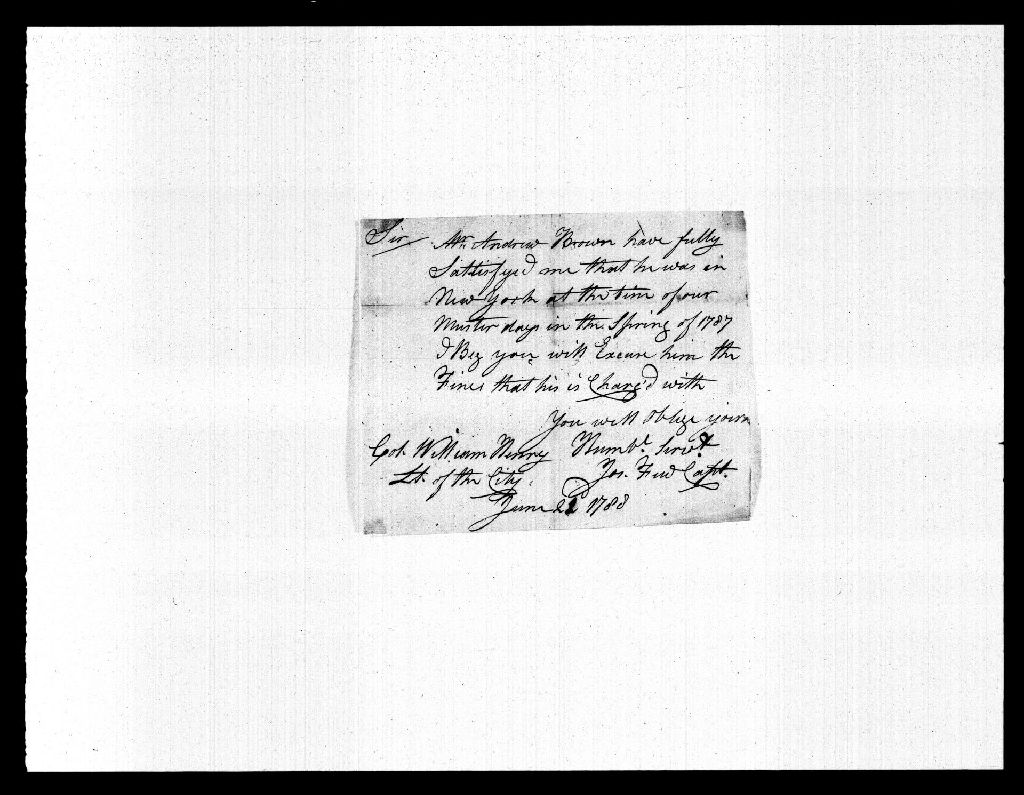 Sir Mr. Andrew Brown have fully
Sattisfyed me that he was in
New York at the time of our
Muster days in the Spring of 1787
I Beg you will Excuse him the
Fines that his is Charg'd with
You will oblige your
Col. William Henry Humbl. Servt.
Lt. of the City. Jos. Few Capt.
June 1788